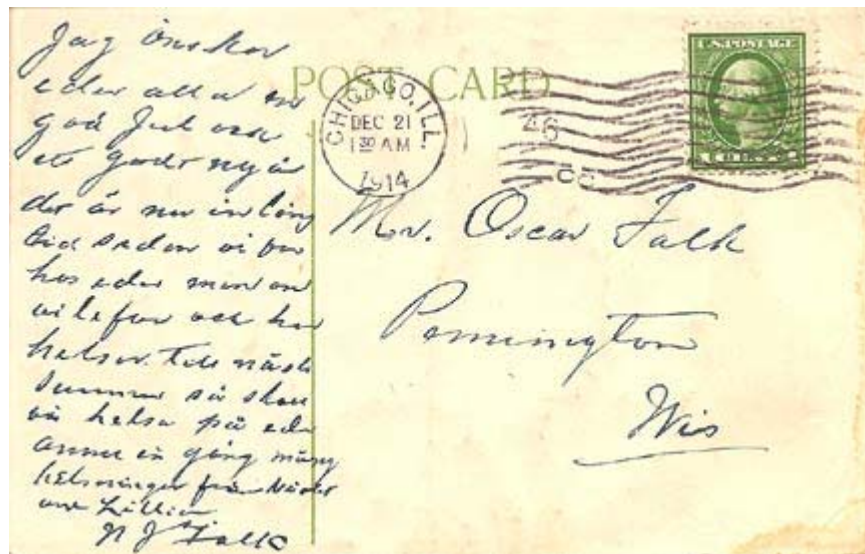 Jag önskar
eder alla en
god Jul och
ett godt nyår
det är nu en lång
tid sedan vi var
hos eder men om
vi lefver och har
helsan. Till nästa
Summer så skall
vi helsa på eder
annu en gång många
helsninger från
och Lillian
N J Falk
POST CARD
CHICAGO, ILL.
DEC 21
1 30 AM
1914
46
U.S. POSTAGE
Mr. Oscar Falk
Pennington
Wis